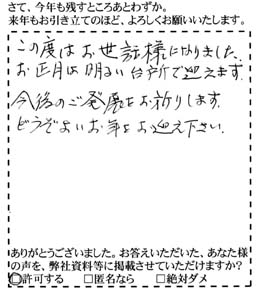 さて、今年も残すところあとわずか。
来年もお引き立てのほど、よろしくお願いいたします。
この度はお世話様になりました。
お正月は明るい台所で迎えます。
今後のご発展をお祈りします。
どうぞよいお年をお迎え下さい。
ありがとうございました。お答えいただいた、あなた様
の声を、弊社資料等に掲載させていただけますか?
□許可する □匿名なら □絶対ダメ